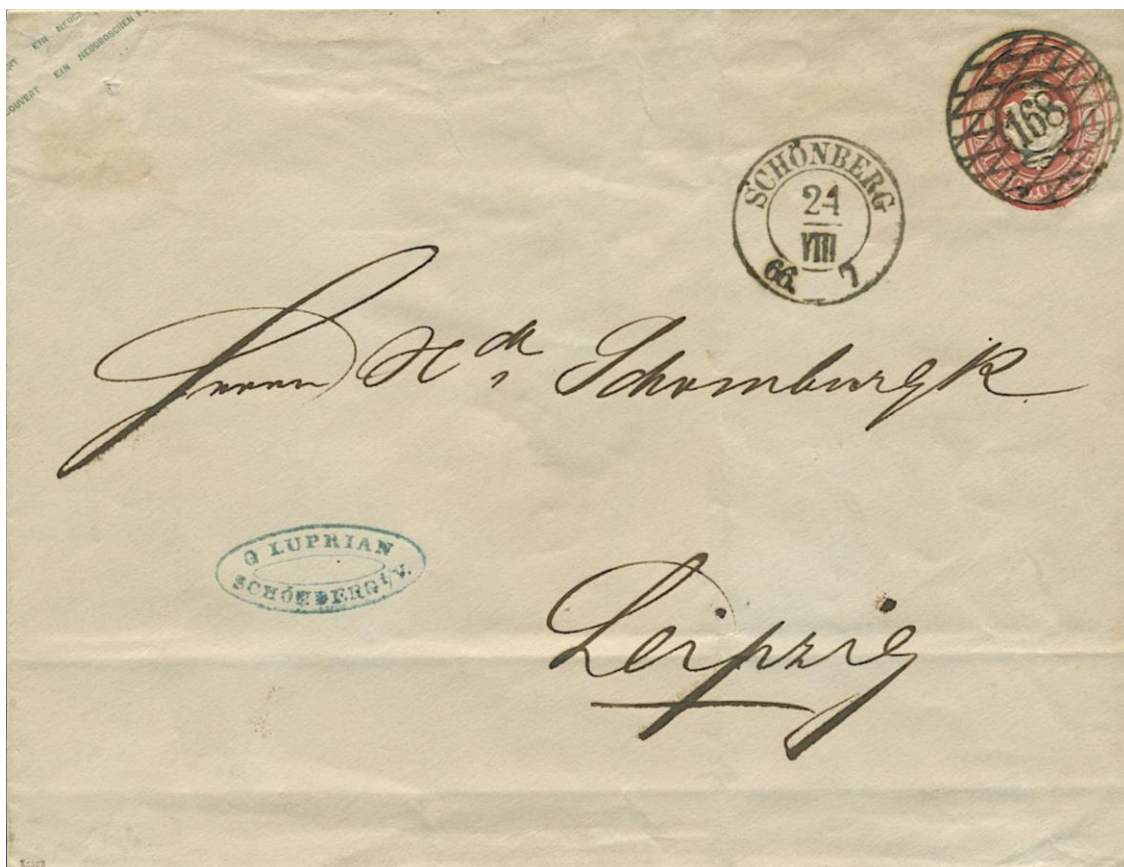 EIN NEUGR
COUVERT EIN NEUGROSCHEN
168
SCHÖNBERG
24
VIII
66. 7
Herrn Hch. Schomburgk
G LUPRIAN
SCHÖNBERG i/V.
Leipzig